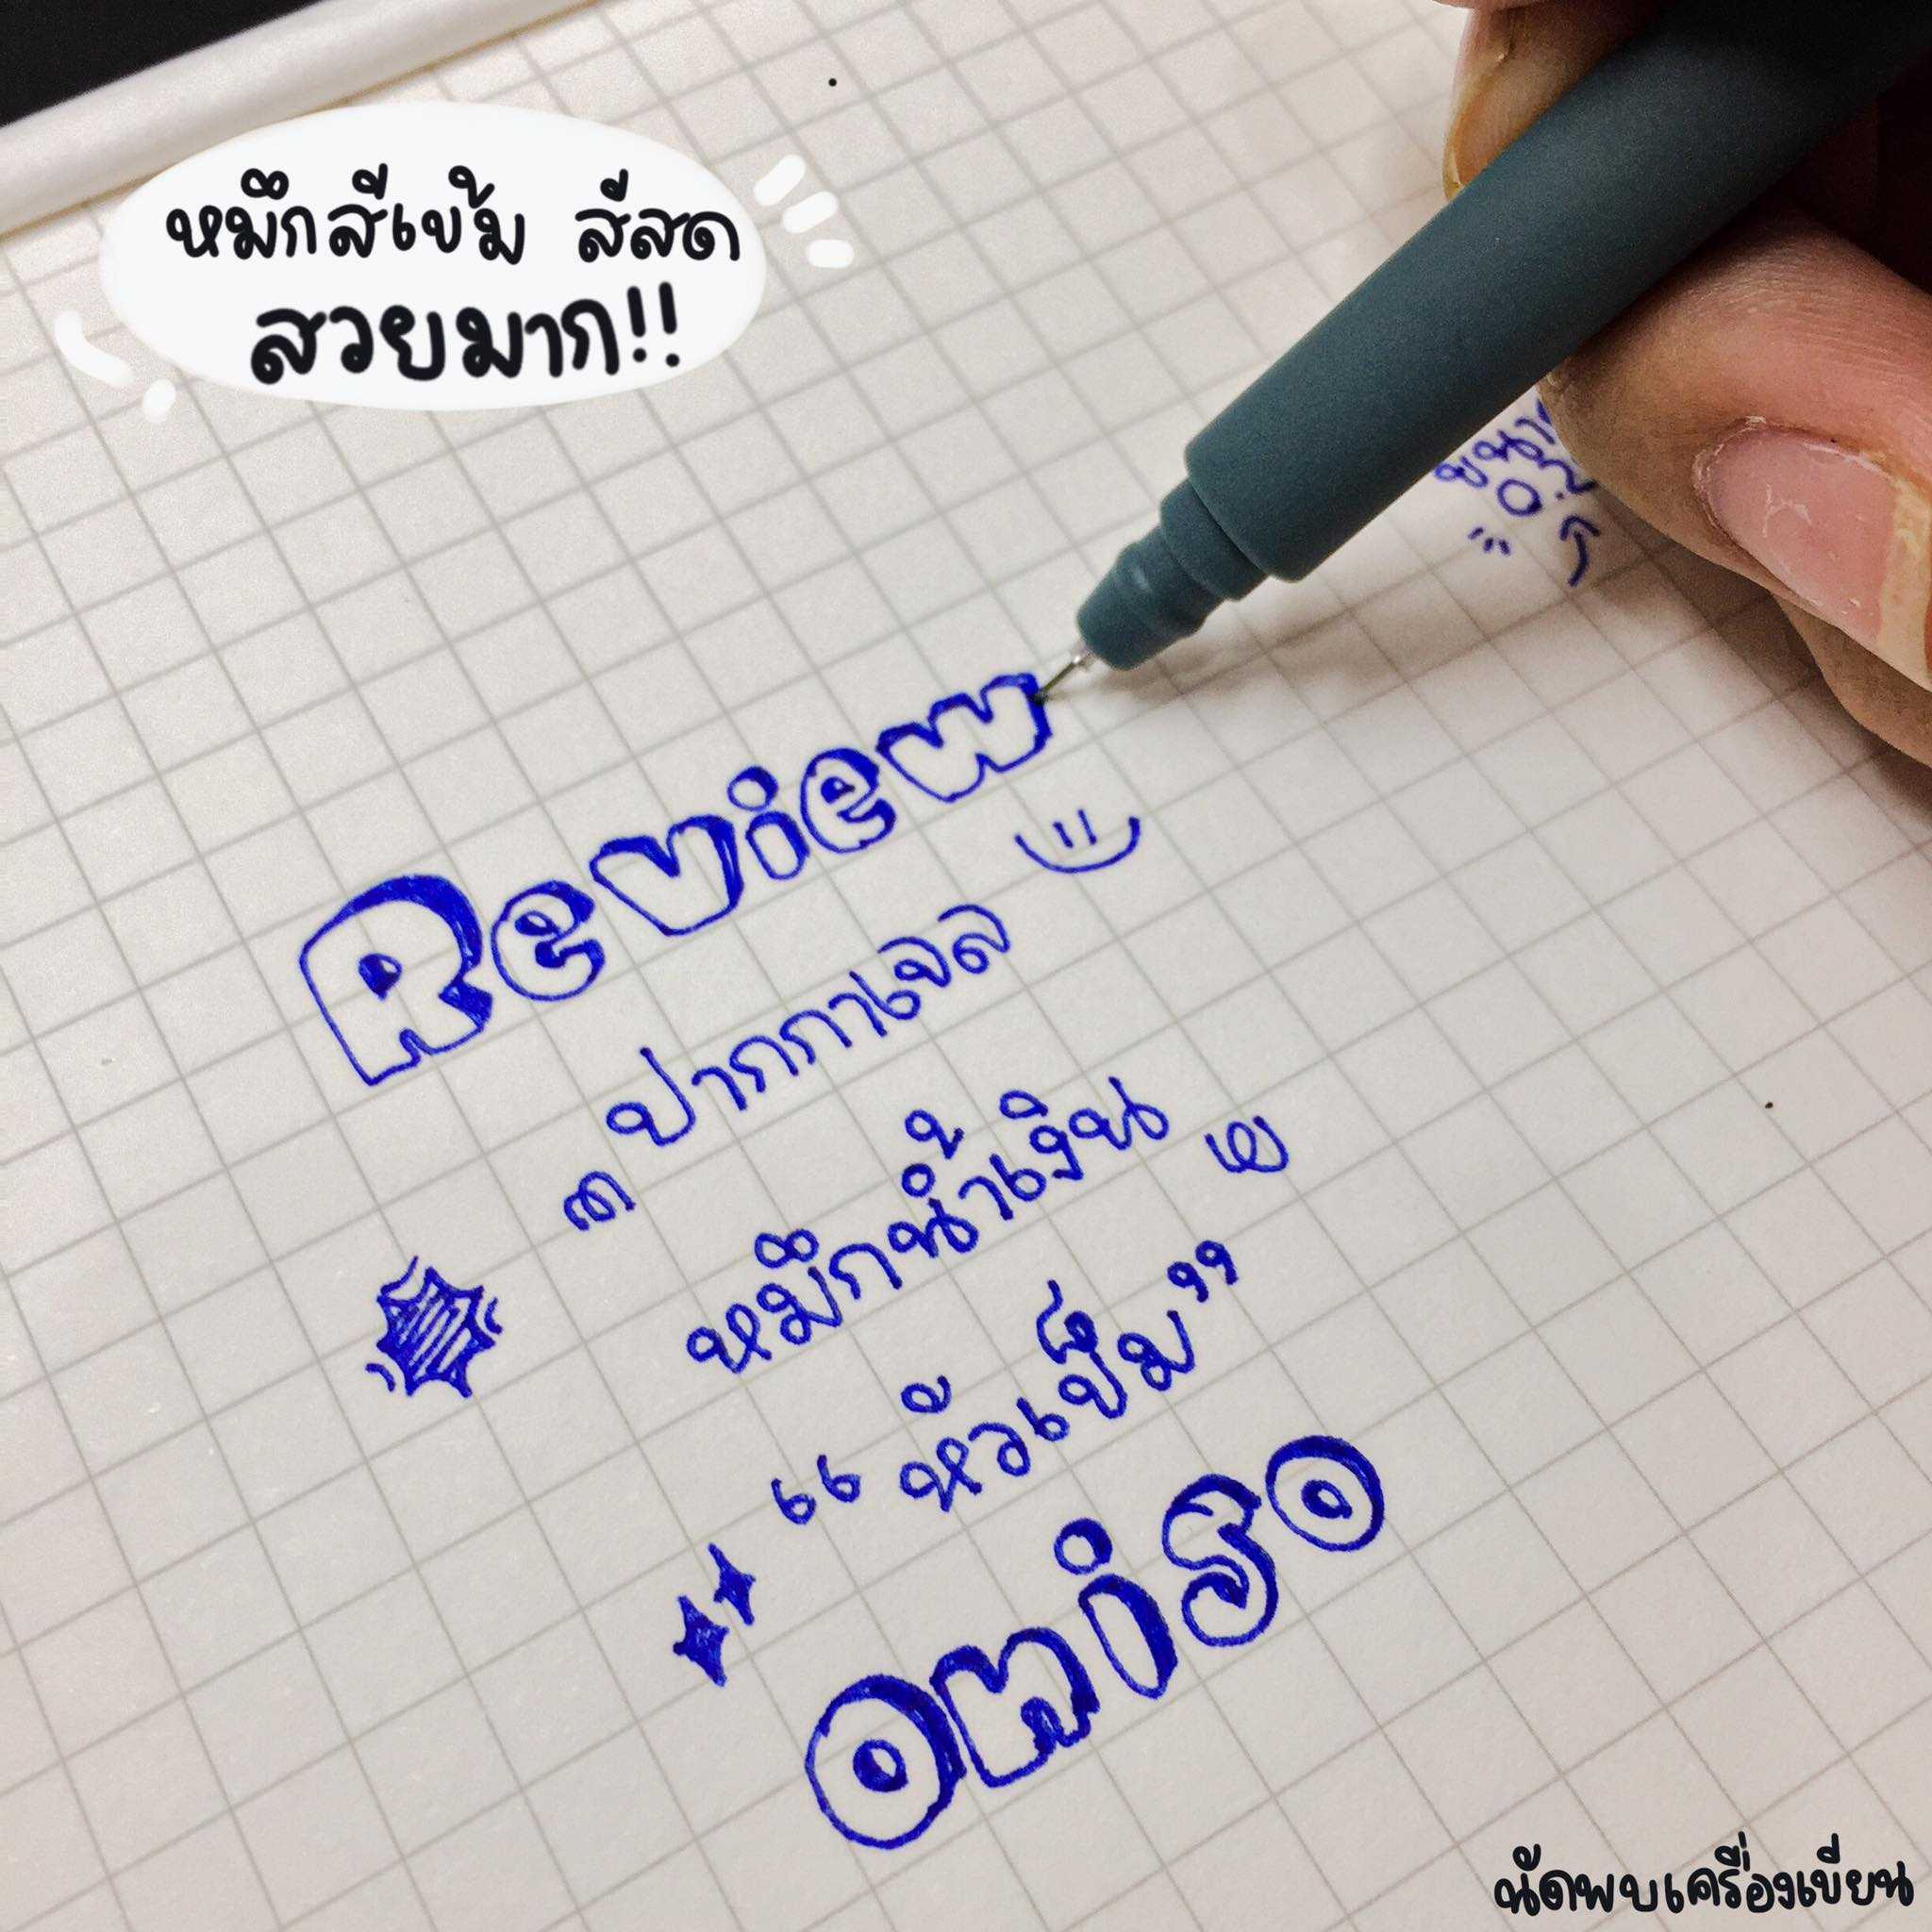 หมึกสีเข้ม สีสด
สวยมาก!!
0.2
Review
ปากกาเจล
หมึกน้ำเงิน
“หัวเข็ม”
ONiSO
นัดพบเครื่องเขียน